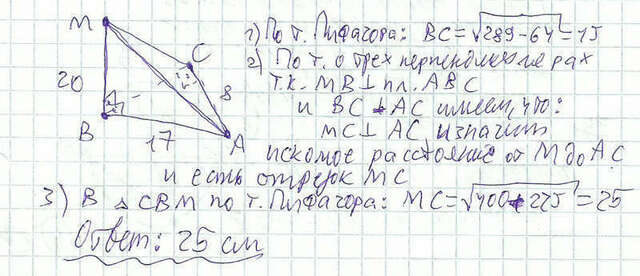 M
C
20
8
B
17
A
1) По т. Пифагора: BC = √289-64 = 15
2) По т. о трех перпендикулярах
т.к. MB ⊥ пл. ABC
и BC ⊥ AC имеем, что:
MC ⊥ AC, и значит
искомое расстояние от M до AC
и есть отрезок MC
3) В △ CBM по т. Пифагора: MC = √400+225 = 25
Ответ: 25 см